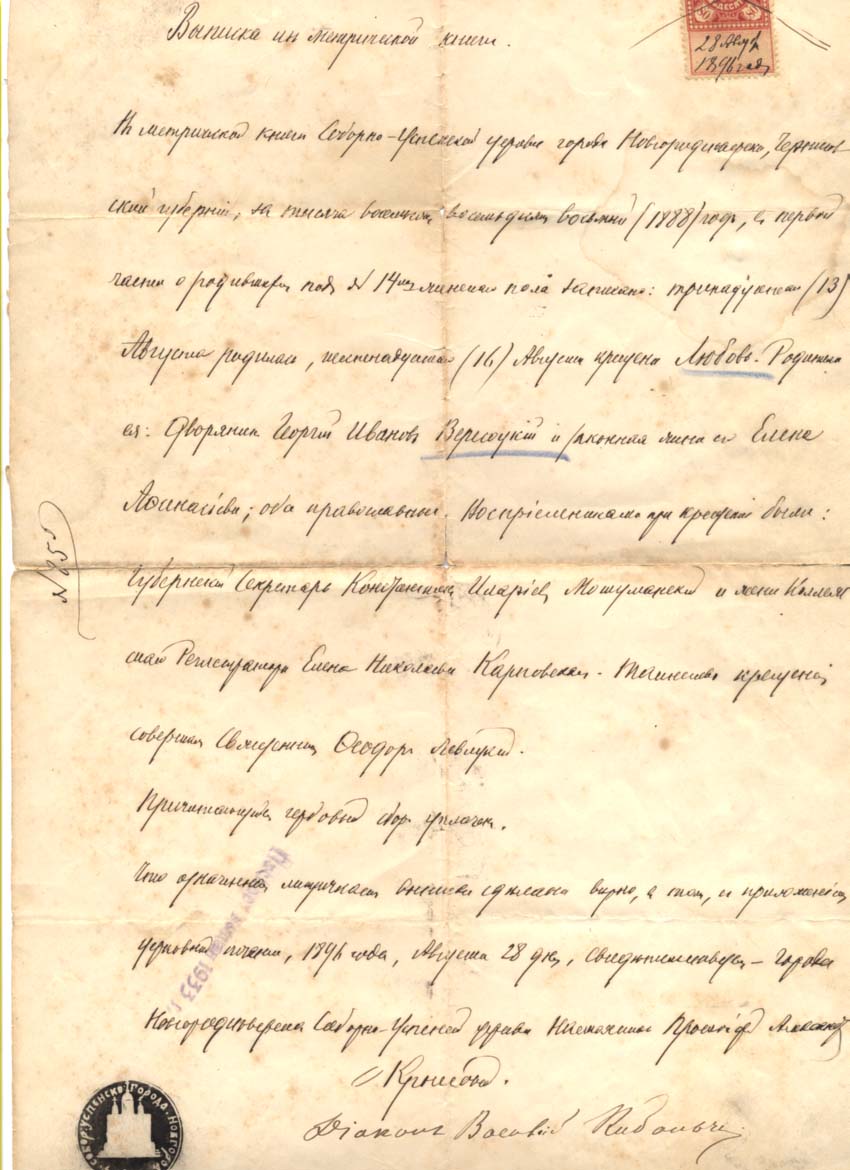 Выписка из метрической книги.
28 Авгу
1896 года
Въ метрической книги Соборно-Успенской церкви города Новгородсеверска, Чернигов-
ской губерніи, за тысяча восемьсот восемьдесят восьмый (1888) годъ, въ первой
части о родившихся подъ № 14 женскаго пола записано: тринадцатаго (13)
Августа родилась, шестнадцатаго (16) Августа крещена Любовь. Родители
ея: Дворянин Георгій Ивановъ и законная жена его Елена
Афанасіева; оба православные. Воспріемниками при крещеніи были:
Губернскій Секретарь Константинъ Иларіев и жена Коллеж-
скаго Регистратора Елена Николаева Карповская. Таинство крещенія
совершил Священник Феодоръ
Причитающійся гербовый сбор уплачен.
Что означенная метрическая выписка сделана вѣрно, в том, с приложеніем
церковной печати, 1896 года, Августа 28 дня, свидѣтельствуем – Города
Новгородсеверска Соборно-Успенской церкви Настоятель Протоіерей
Діаконъ Василій
№ 25
Паспорт выдан 1933 г.
Собор. Успенск. Города Новгород